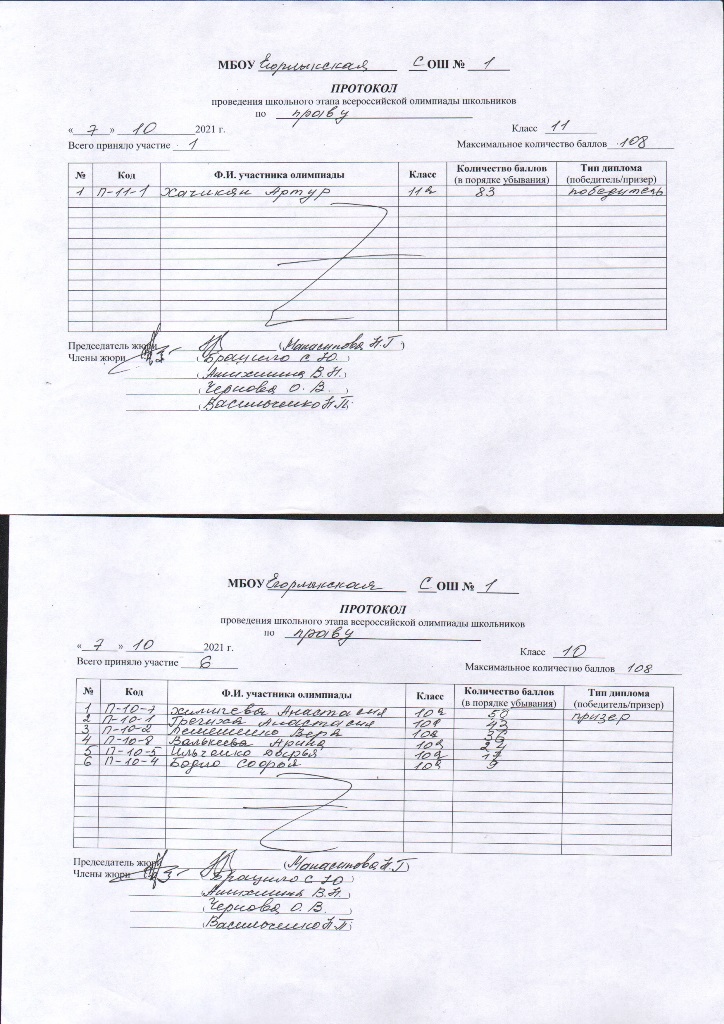 МБОУ Егорлыкская С ОШ № 1
ПРОТОКОЛ
проведения школьного этапа всероссийской олимпиады школьников
по праву
« 7 » 10 2021 г. Класс 11
Всего приняло участие 1 Максимальное количество баллов 108
№ Код Ф.И. участника олимпиады Класс Количество баллов (в порядке убывания) Тип диплома (победитель/призер)
1 П-11-1 Хачикян Артур 11а 83 победитель
Председатель жюри (Манасипова Н.Г)
Члены жюри (Брацило С.Ю.)
(Анихнина В.Н.)
(Чернова О. В.)
(Васильченко Н.П.)
МБОУ Егорлыкская С ОШ № 1
ПРОТОКОЛ
проведения школьного этапа всероссийской олимпиады школьников
по праву
« 7 » 10 2021 г. Класс 10
Всего приняло участие 6 Максимальное количество баллов 108
№ Код Ф.И. участника олимпиады Класс Количество баллов (в порядке убывания) Тип диплома (победитель/призер)
1 П-10-7 Анастасия 10а 50 призер
2 П-10-1 Анастасия 10а 43
3 П-10-2 Лемешенко Вера 10а
4 П-10-8 Валькеева Арина 10а
5 П-10-5 Ильченко Дарья 10а 17
6 П-10-4 Бодло Софья 10а 9
Председатель жюри (Манасипова Н.Г)
Члены жюри (Брацило С.Ю)
(Анихнина В.Н.)
(Чернова О. В.)
(Васильченко Н.П)